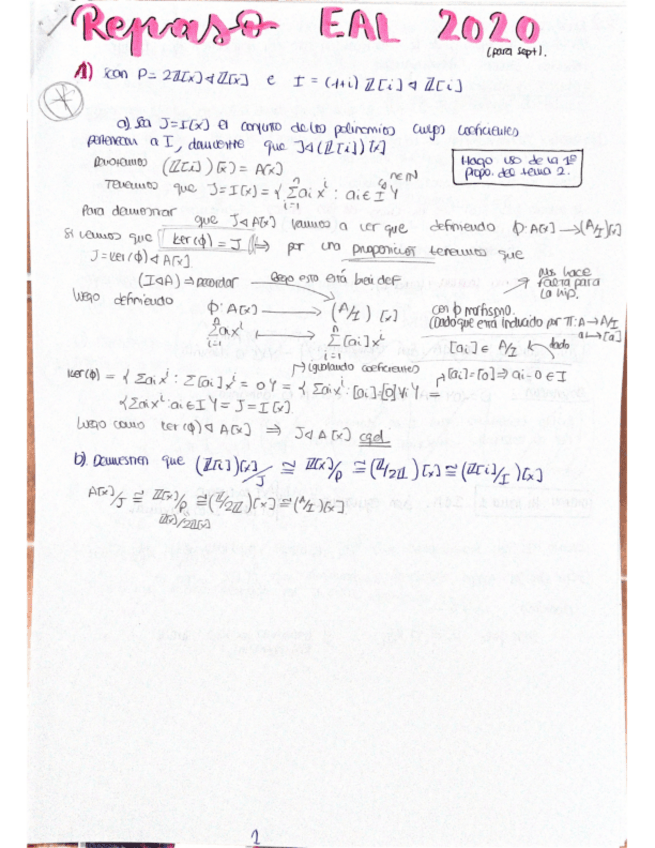 Repaso EAL 2020
(para sept).
1) Sean P = 2ℤ[x] ◁ ℤ[x] e I = (1+i) ℤ[i] ◁ ℤ[i]
a) Sea J = I[x] el conjunto de los polinomios cuyos coeficientes
pertenecen a I, demuestre que J ◁ (ℤ[i])[x]
Denotemos (ℤ[i])[x] = A[x]
Hago uso de la 1ª
propo. del tema 2.
Tenemos que J = I[x] = { Σ aᵢ xⁱ : aᵢ ∈ I }
n ∈ ℕ
Para demostrar que J ◁ A[x] vamos a ver que definiendo ϕ: A[x] → (A/I)[x]
Si vemos que ker(ϕ) = J ⇒ por una proposición tenemos que
J = ker(ϕ) ◁ A[x]
(I ◁ A) ⇒ recordar luego esto está bien def.
Nos hace
falta para
la hip.
Luego definiendo ϕ: A[x] → (A/I)[x] con ϕ morfismo.
Σ aᵢ xⁱ ↦ Σ [aᵢ] xⁱ
(Dado que está inducido por π: A → A/I
a ↦ [a]
[aᵢ] ∈ A/I dado
igualando coeficientes
[aᵢ] = [0] ⇒ aᵢ - 0 ∈ I
ker(ϕ) = { Σ aᵢ xⁱ : Σ [aᵢ] xⁱ = 0 } = { Σ aᵢ xⁱ : [aᵢ] = [0] ∀i } =
{ Σ aᵢ xⁱ : aᵢ ∈ I } = J = I[x]
Luego como ker(ϕ) ◁ A[x] ⇒ J ◁ A[x] cqd
b) Demuestren que (ℤ[i])[x]/J ≅ ℤ[x]/P ≅ (ℤ/2ℤ)[x] ≅ (ℤ[i]/I)[x]
A[x]/J ≅ ℤ[x]/P ≅ (ℤ/2ℤ)[x] ≅ (A/I)[x]
ℤ[x]/2ℤ[x]
1